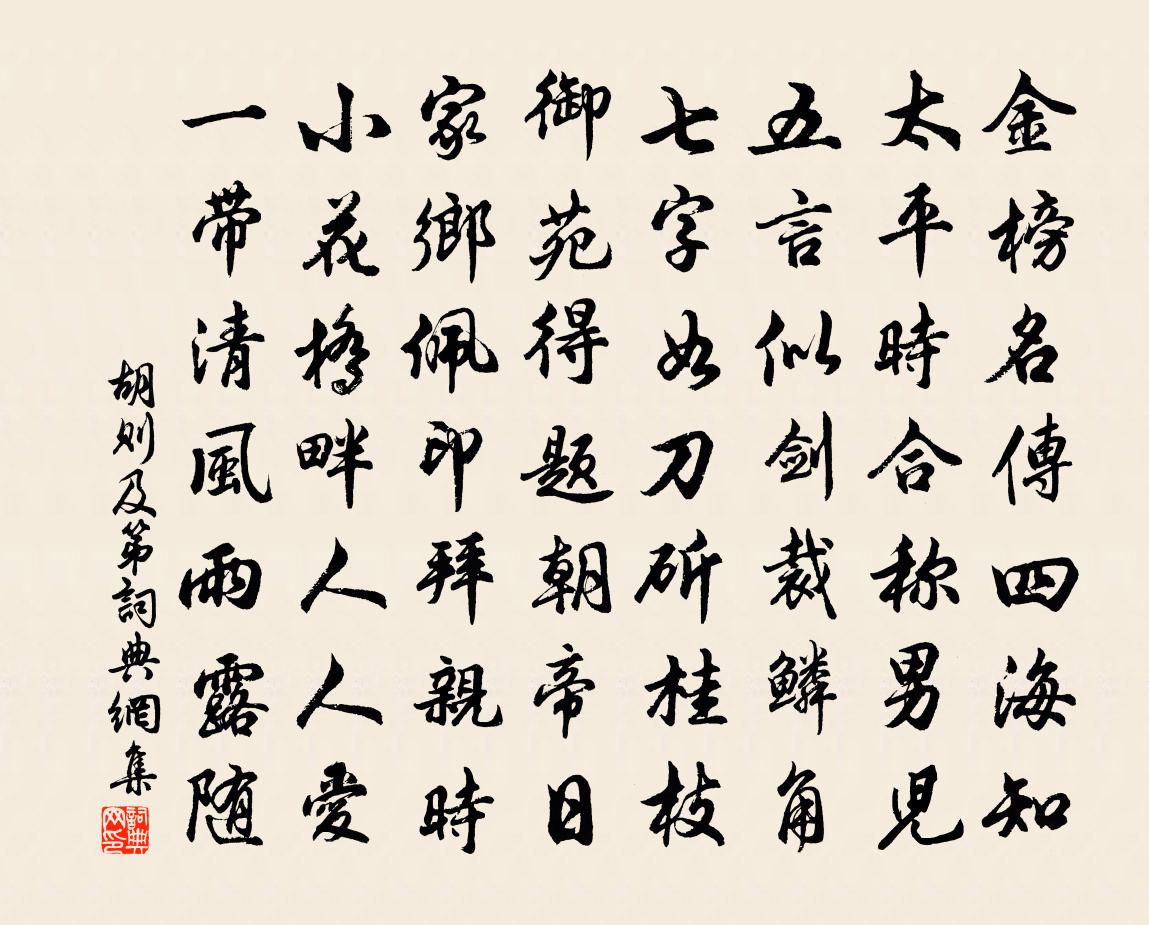 金榜名傳四海知
太平時合称男児
五言似剑裁鳞角
七字如刀斫桂枝
御苑得题朝帝日
家鄉佩印拜親時
小花橋畔人人愛
一帶清風雨露随
胡则及第詞典網集
詞典
网印